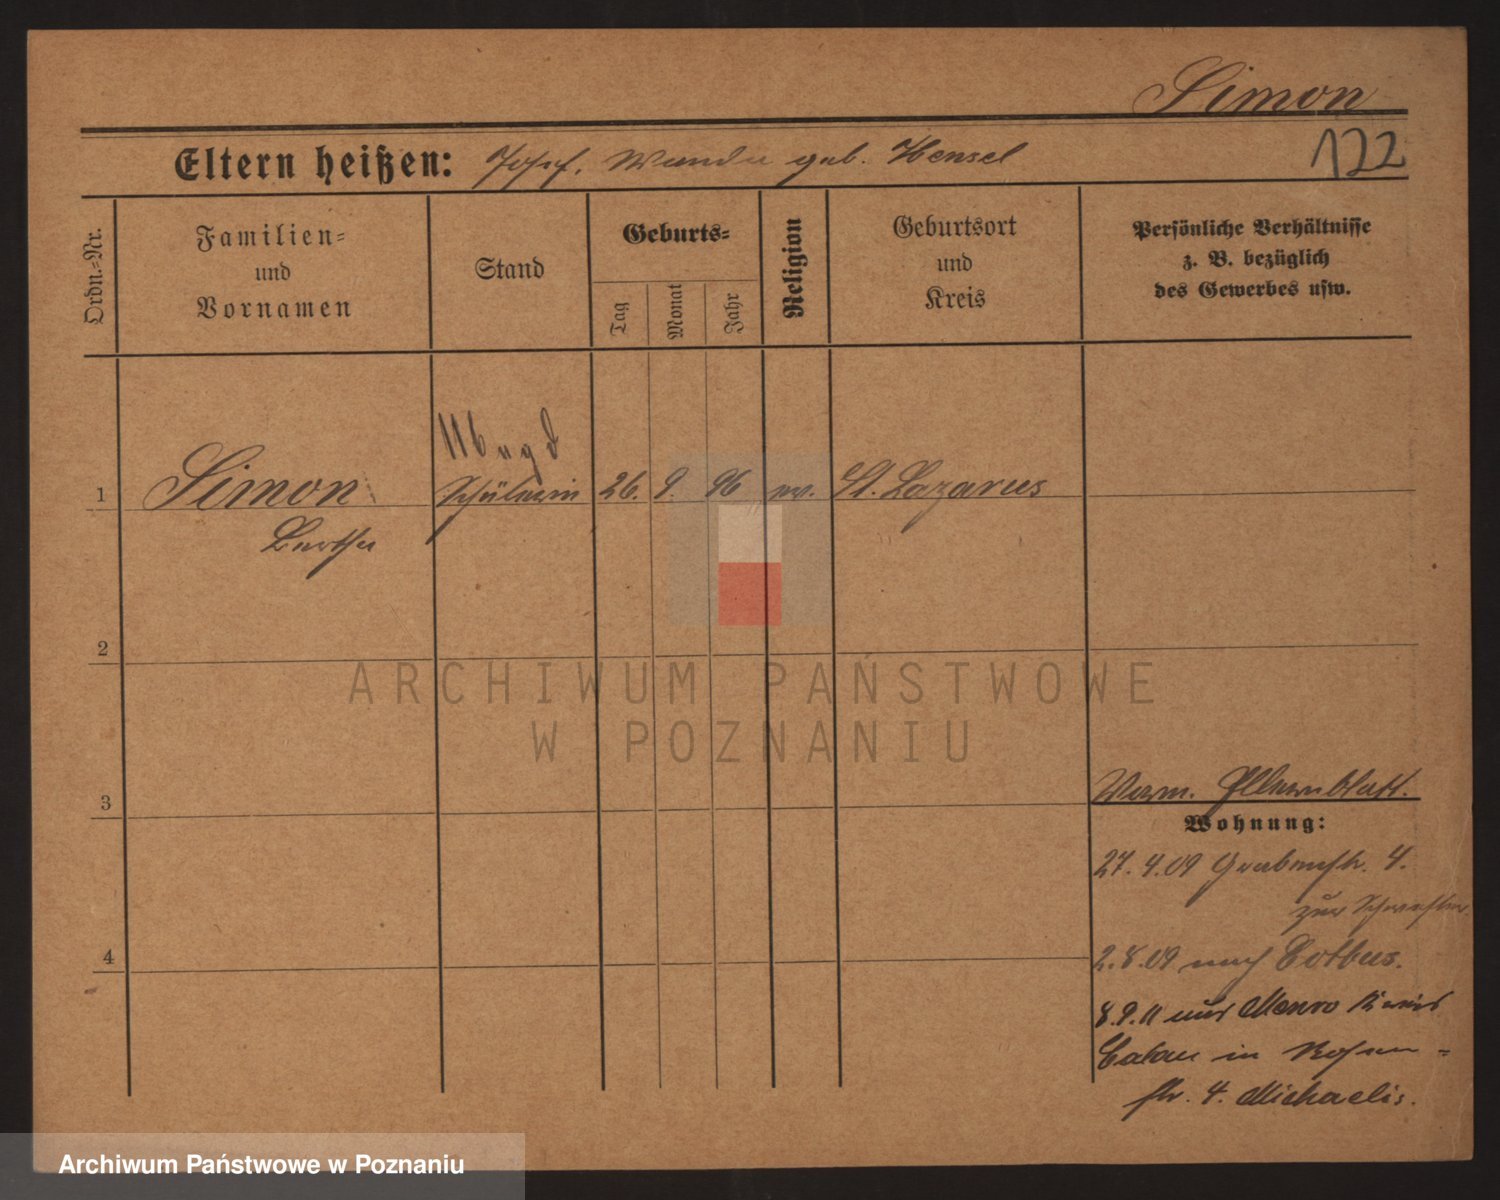 Simon
Eltern heißen: Josef, Wanda geb. Hensel
122
Ordn.=Nr.
Familien=
und
Vornamen
Stand
Geburts=
Tag
Monat
Jahr
Religion
Geburtsort
und
Kreis
Persönliche Verhältnisse
z. B. bezüglich
des Gewerbes usw.
Magd
1 Simon Schülerin 26. 9. 96 ev. St. Lazarus
Bertha
2
ARCHIWUM PAŃSTWOWE
W POZNANIU
Verm. Elternblatt.
3
Wohnung:
27.4.09 Grabenstr. 4.
zur Schwester
4
2.8.09 nach Cotbus.
8.9.11 aus Kreis
Calau in Rosen=
str. 4. Michaelis.
Archiwum Państwowe w Poznaniu